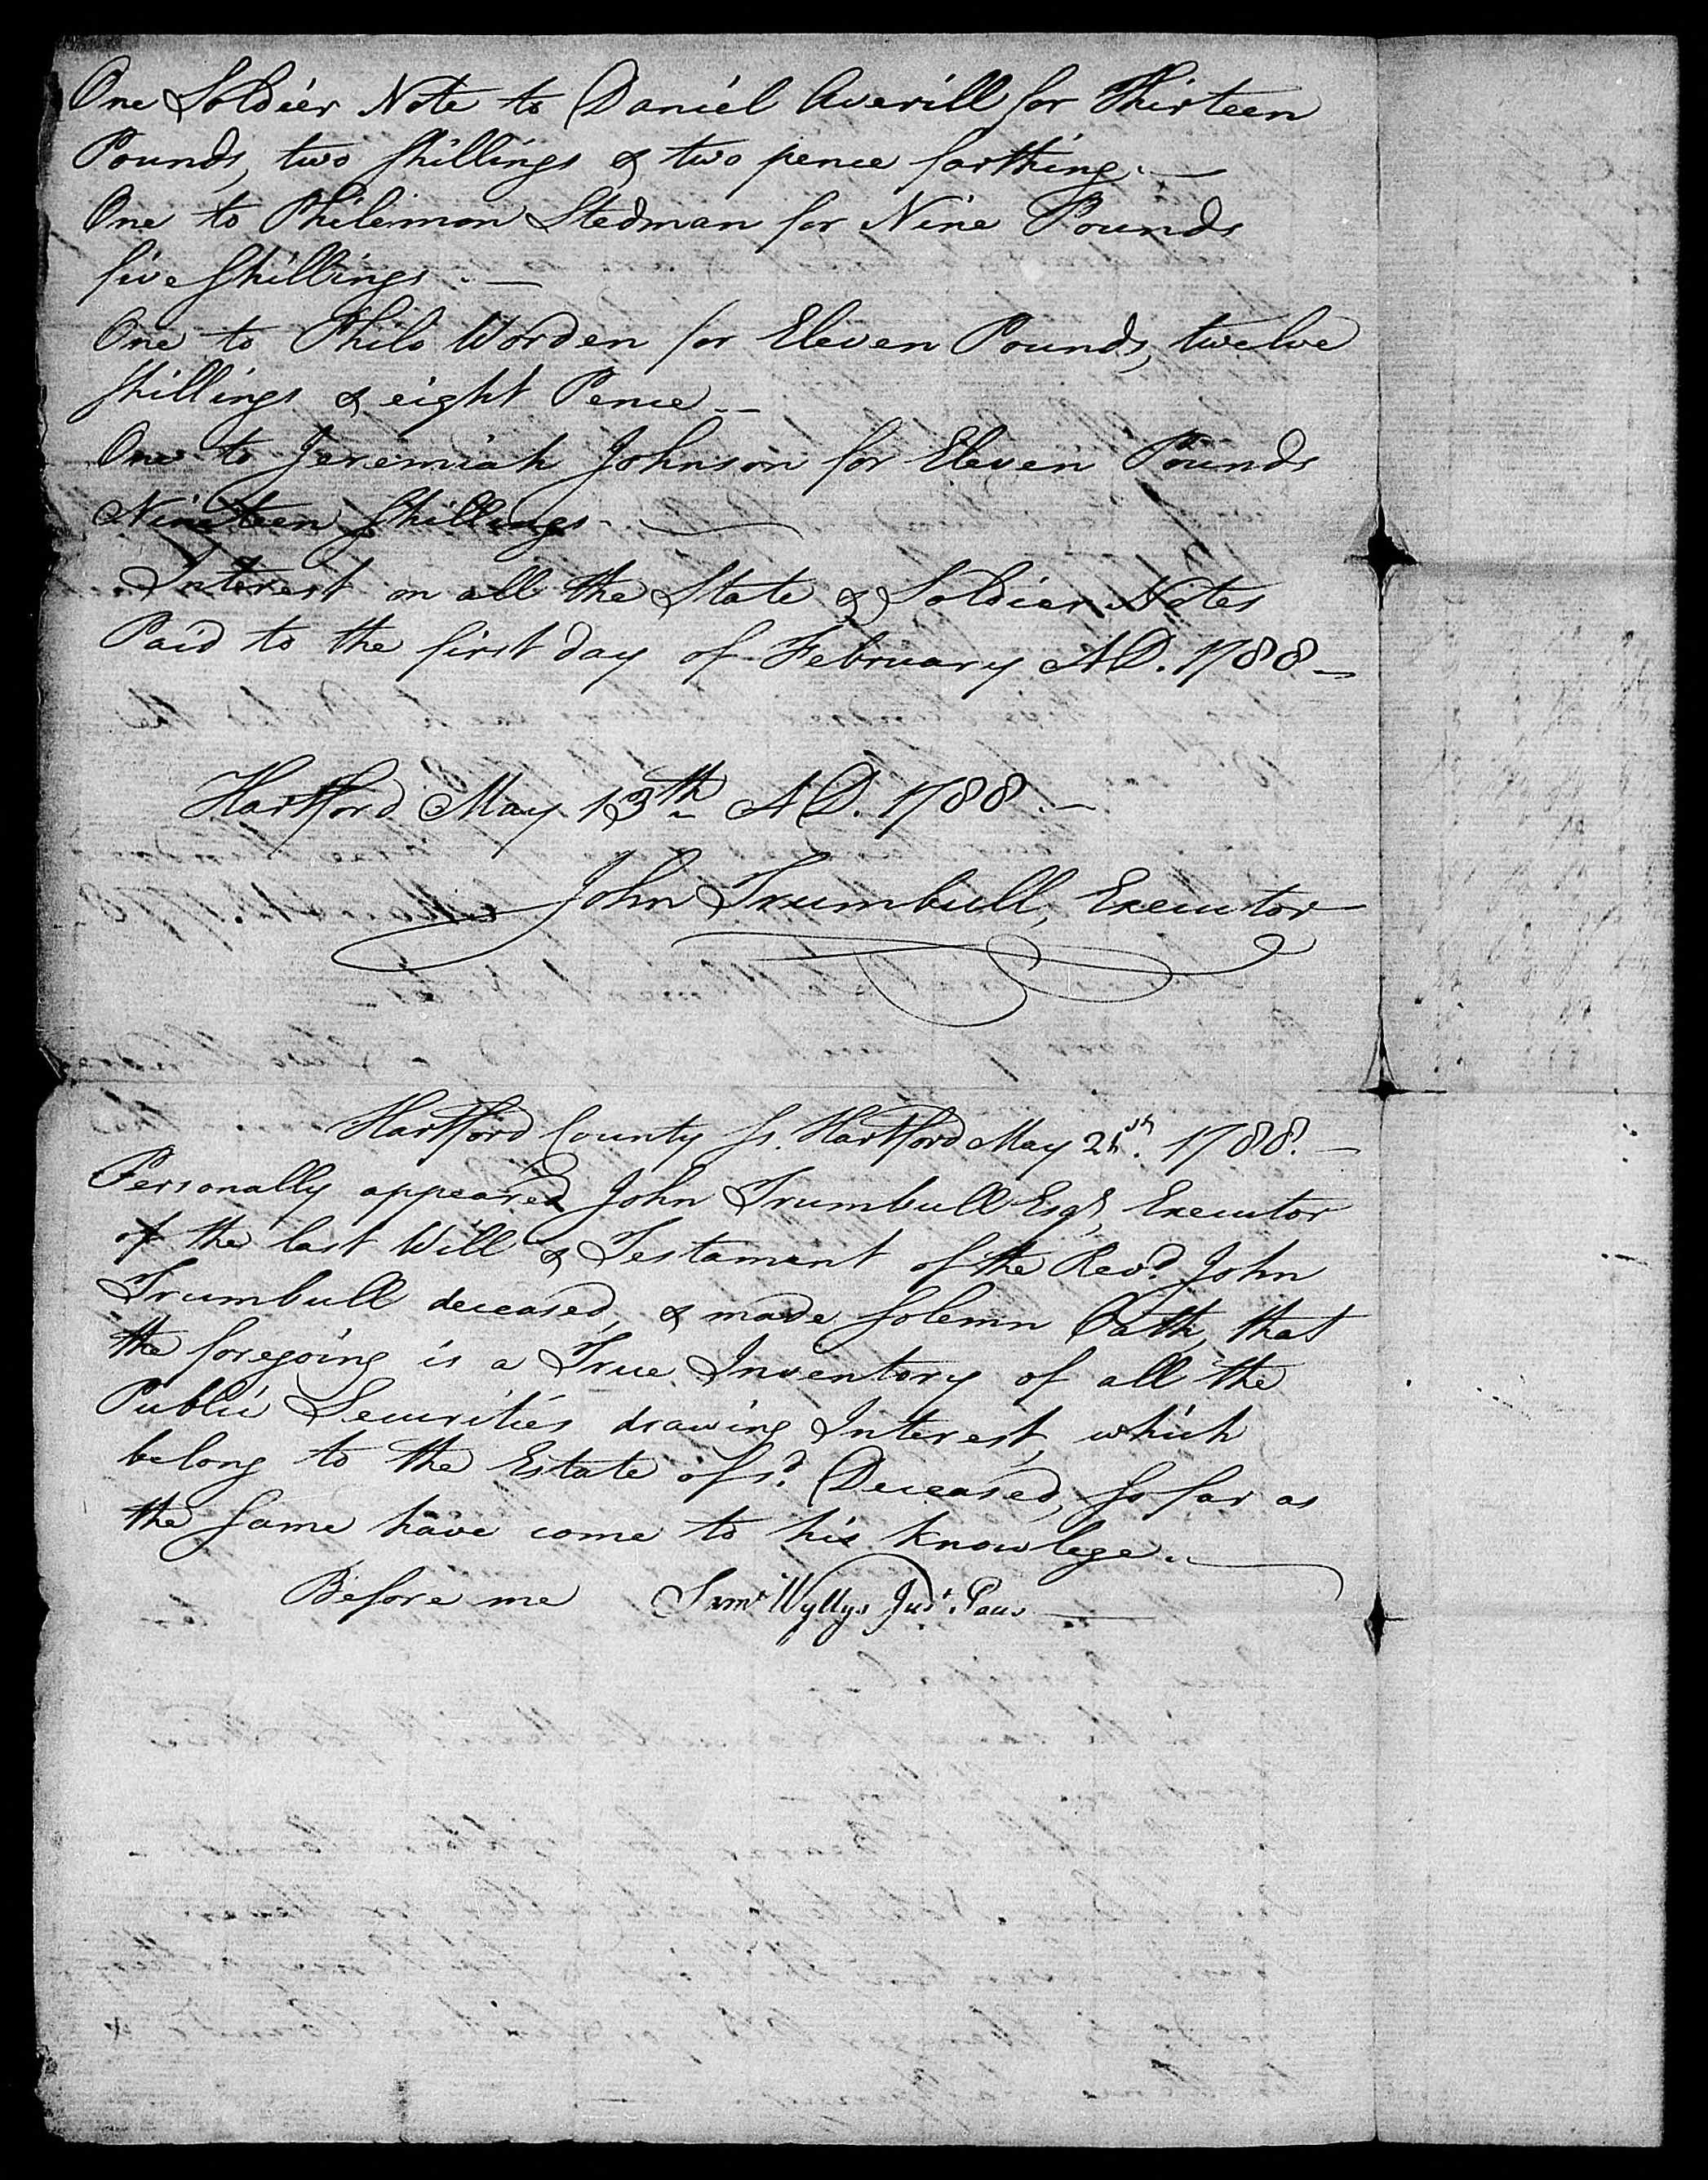 One Soldier Note to Daniel Averill for Thirteen
Pounds, two shillings & two pence farthing. —
One to Philemon Stedman for Nine Pounds
five shillings. —
One to Philo Worden for Eleven Pounds, twelve
shillings & eight Pence —
One to Jeremiah Johnson for Eleven Pounds
Nineteen shillings. —
Interest on all the State & Soldier Notes
Paid to the first day of February AD. 1788 —
Hartford May 13th AD. 1788. —
John Trumbull, Executor
Hartford County ss. Hartford May 1788. —
Personally appeared John Trumbull Esqr, Executor
of the last Will & Testament of the Revd. John
Trumbull deceased, & made solemn Oath, that
the foregoing is a True Inventory of all the
Public Securities drawing Interest, which
belong to the Estate of sd. Deceased, so far as
the same have come to his knowlege. —
Before me Saml Wyllys Just. Pacis